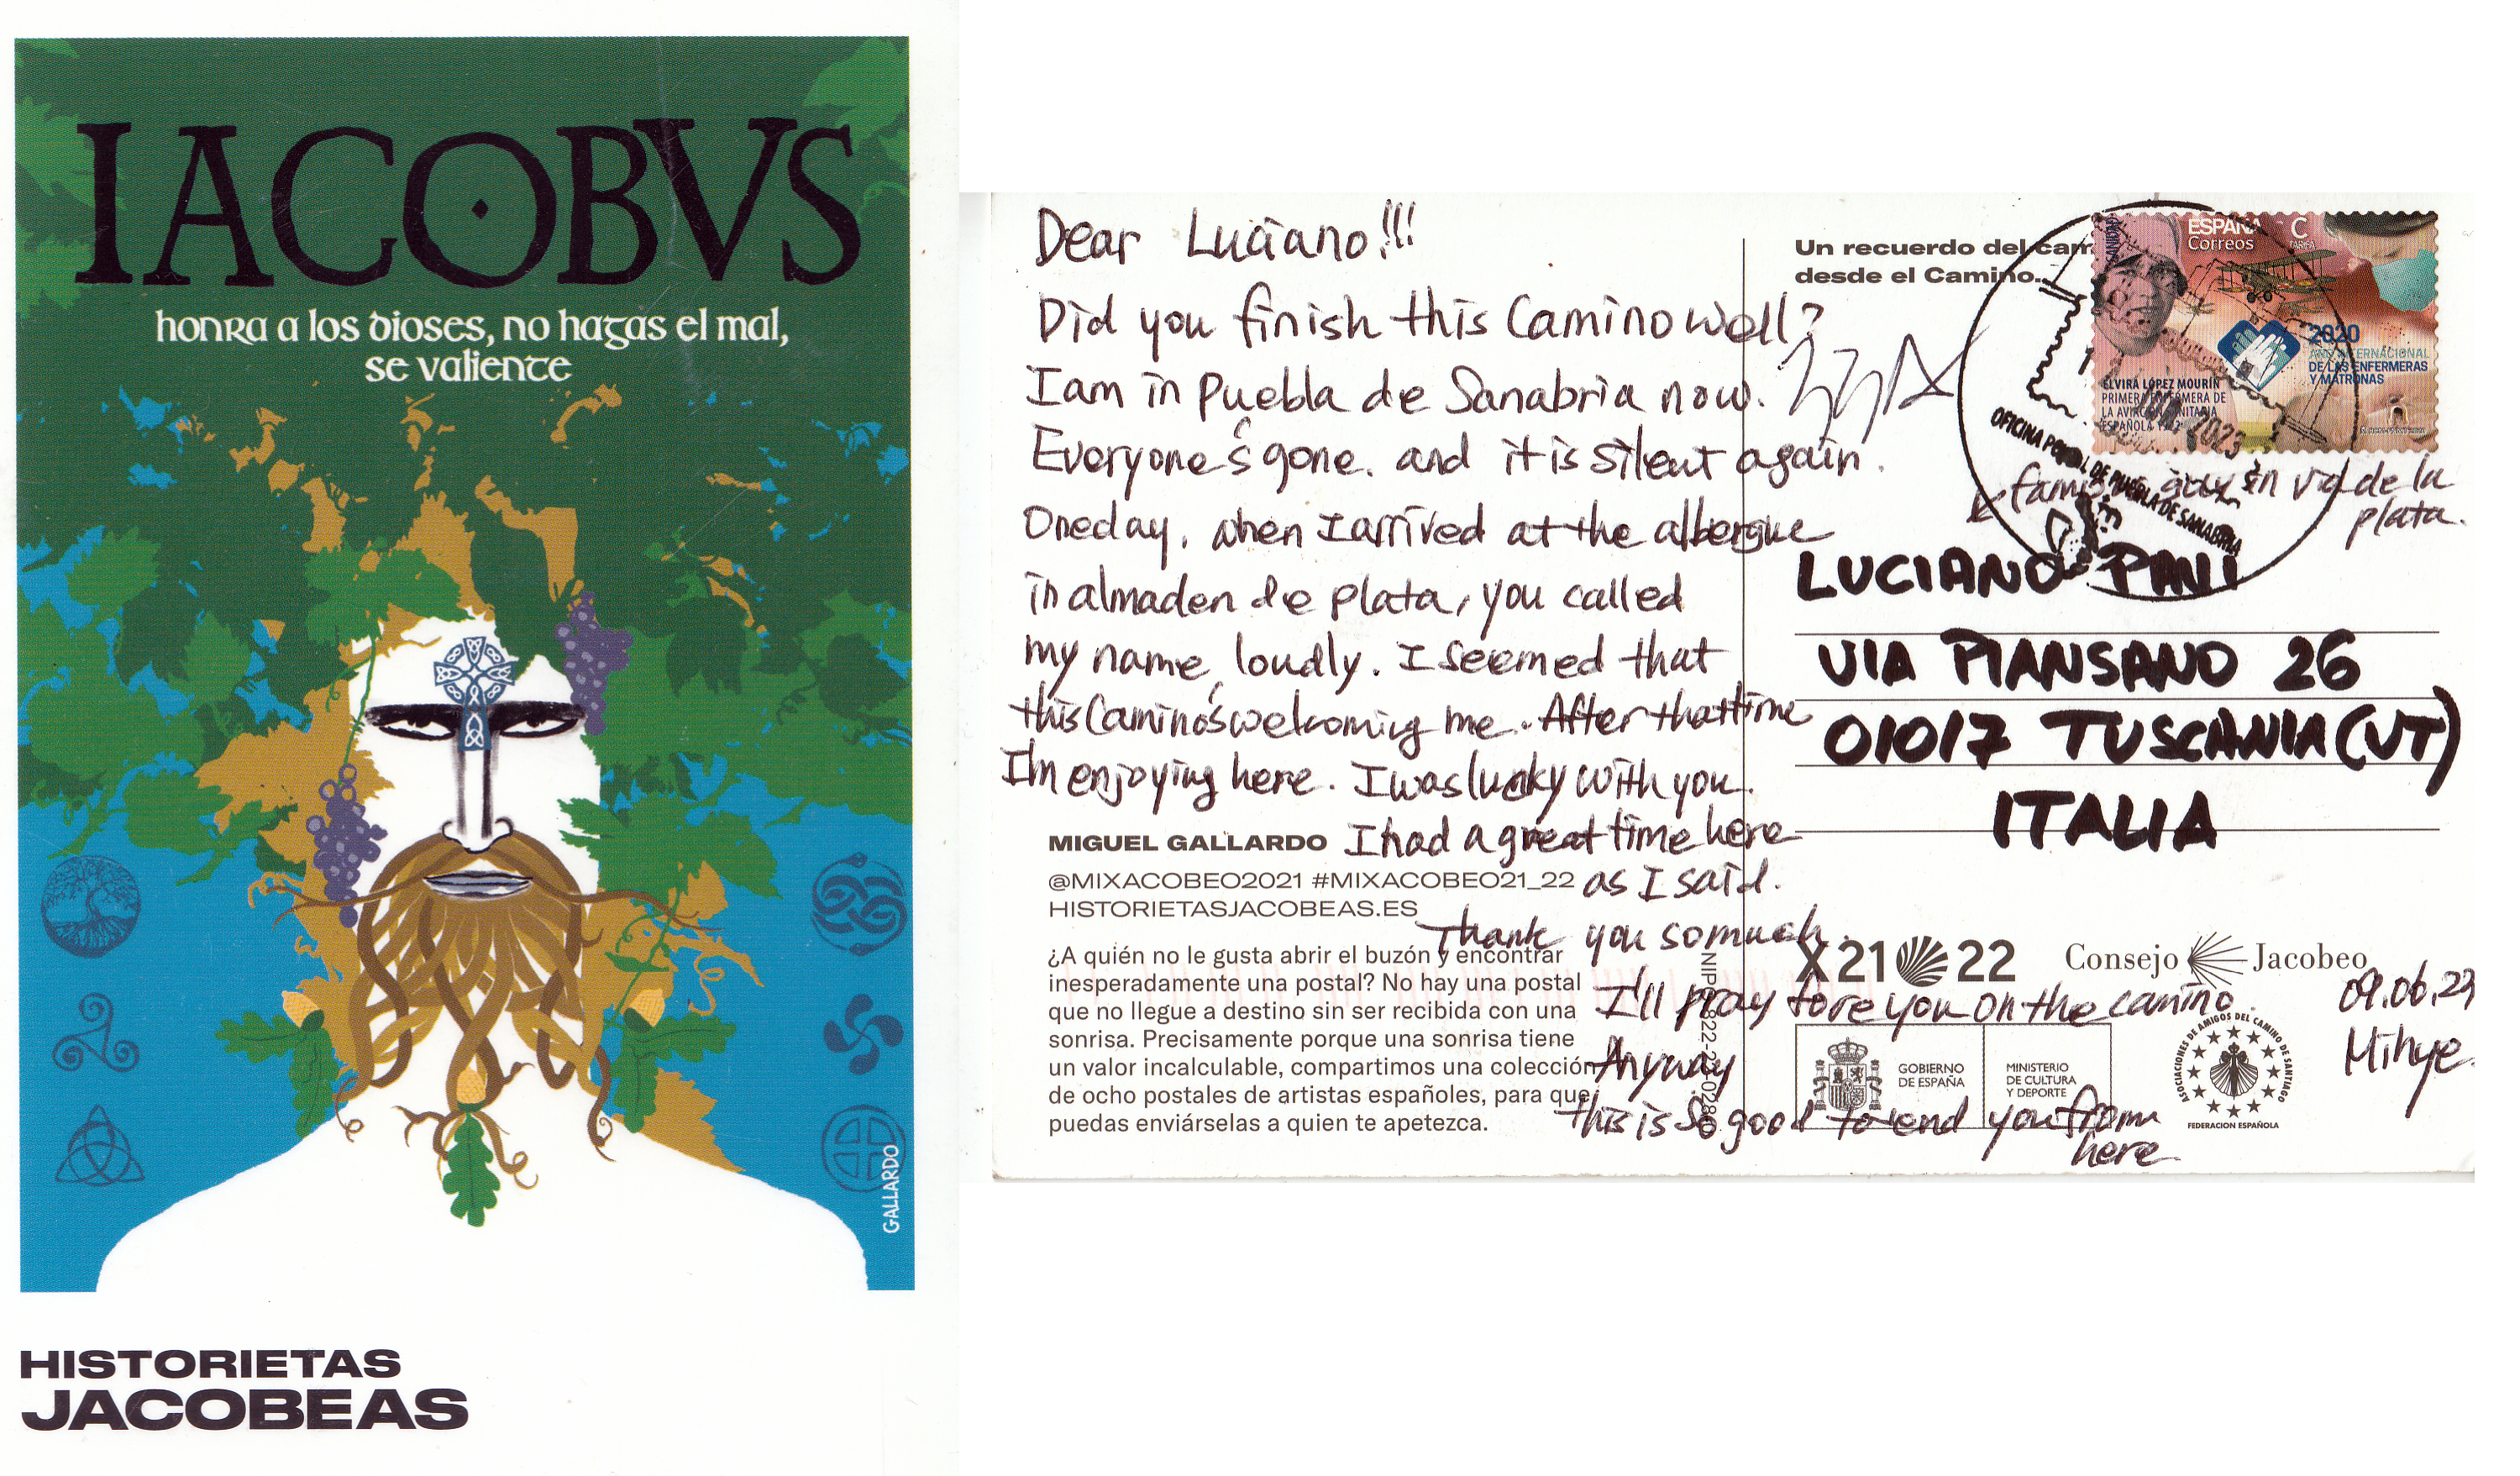 IACOBVS
honra a los dioses, no hagas el mal,
se valiente
GALLARDO
HISTORIETAS
JACOBEAS
Dear Luciano!!!
Did you finish this Camino well?
I am in puebla de Sanabria now.
Everyone's gone. and it is silent again.
Oneday, when I arrived at the albergue
in almaden de plata, you called
my name loudly. I seemed that
this Camino's welcoming me. After that time
I'm enjoying here. I was lucky with you.
I had a great time here
as I said.
Thank you so much.
I'll pray fore you on the camino.
Anyway
this is so good to send you from
here
09.06.23
Mihye.
MIGUEL GALLARDO
@MIXACOBEO2021 #MIXACOBEO21_22
HISTORIETASJACOBEAS.ES
¿A quién no le gusta abrir el buzón y encontrar
inesperadamente una postal? No hay una postal
que no llegue a destino sin ser recibida con una
sonrisa. Precisamente porque una sonrisa tiene
un valor incalculable, compartimos una colección
de ocho postales de artistas españoles, para que
puedas enviárselas a quien te apetezca.
Un recuerdo del
desde el Camino...
ESPAÑA
Correos
C
TARIFA
2020
AÑO INTERNACIONAL
DE LAS ENFERMERAS
Y MATRONAS
ELVIRA LÓPEZ MOURÍN
PRIMERA ENFERMERA DE
LA AVIACIÓN SANITARIA
ESPAÑOLA
2023
OFICINA POSTAL DE PUEBLA DE SANABRIA
guy in via de la
plata.
LUCIANO PANI
VIA PIANSANO 26
01017 TUSCANIA (VT)
ITALIA
X21 22
Consejo Jacobeo
GOBIERNO
DE ESPAÑA
MINISTERIO
DE CULTURA
Y DEPORTE
ASOCIACIONES DE AMIGOS DEL CAMINO DE SANTIAGO
FEDERACION ESPAÑOLA